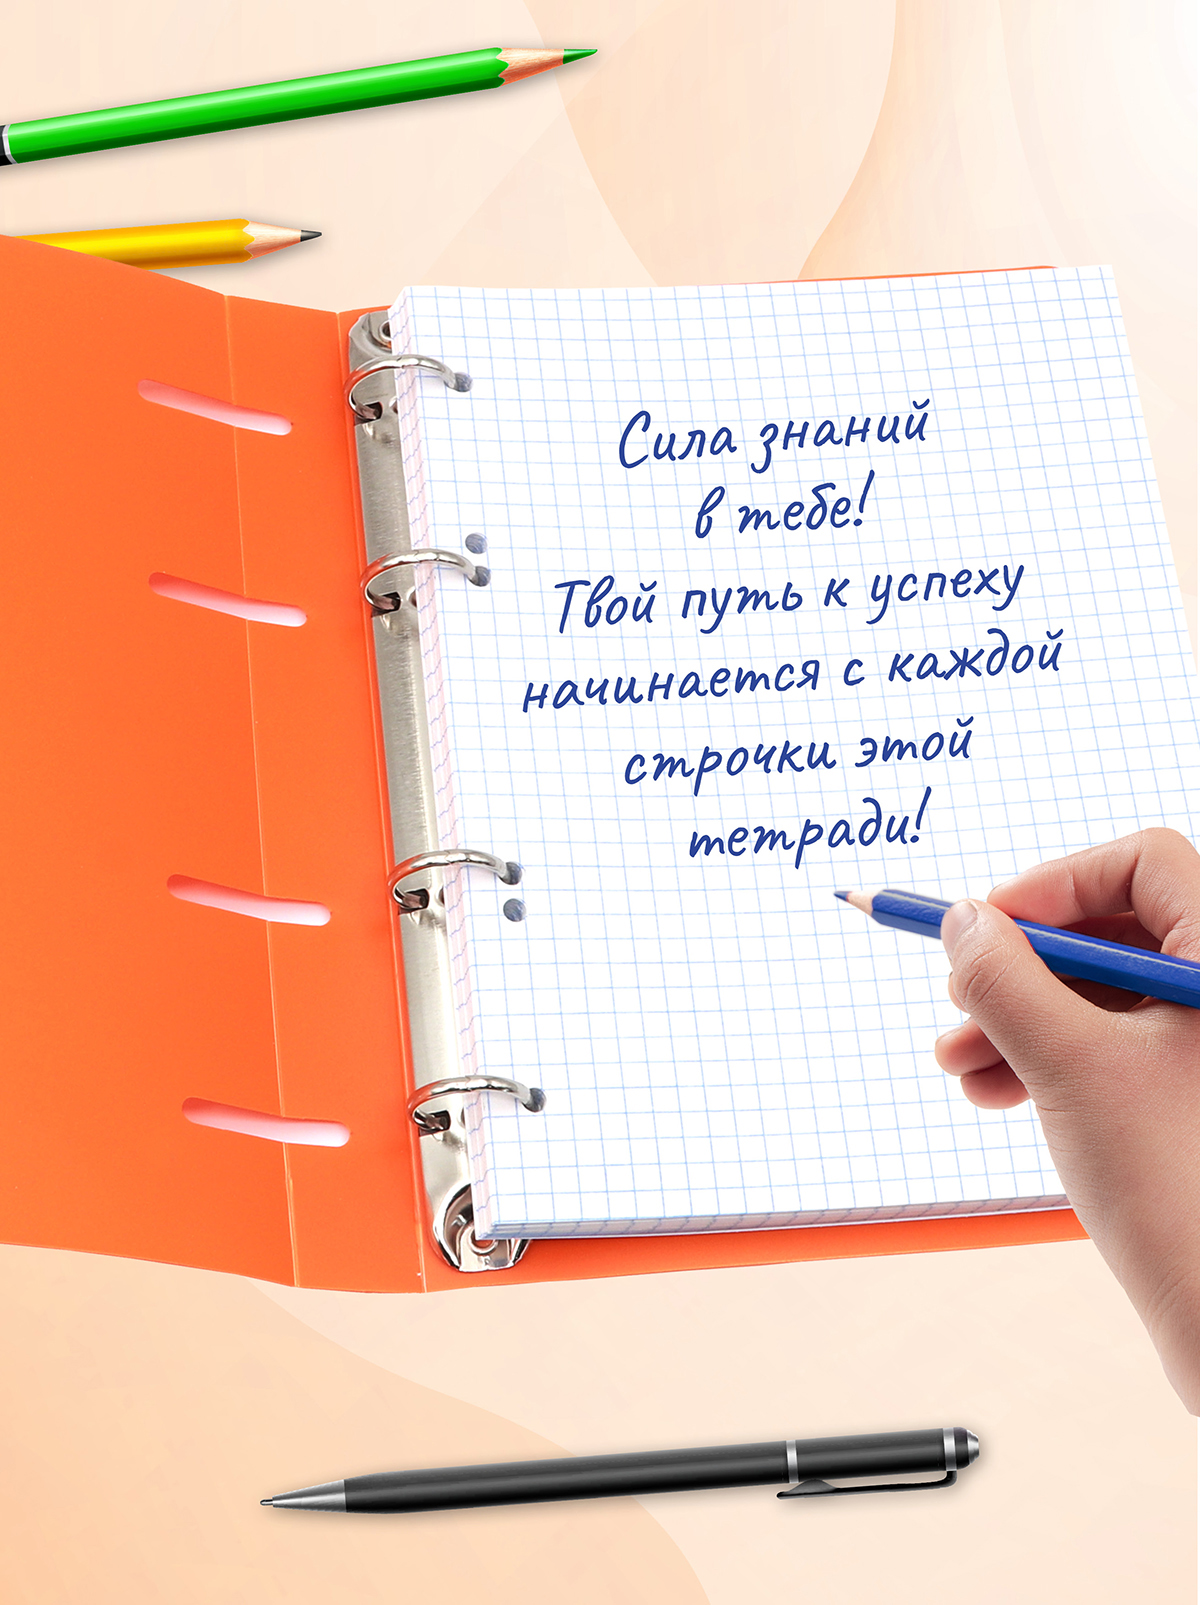 Сила знаний
в тебе!
Твой путь к успеху
начинается с каждой
строчки этой
тетради!